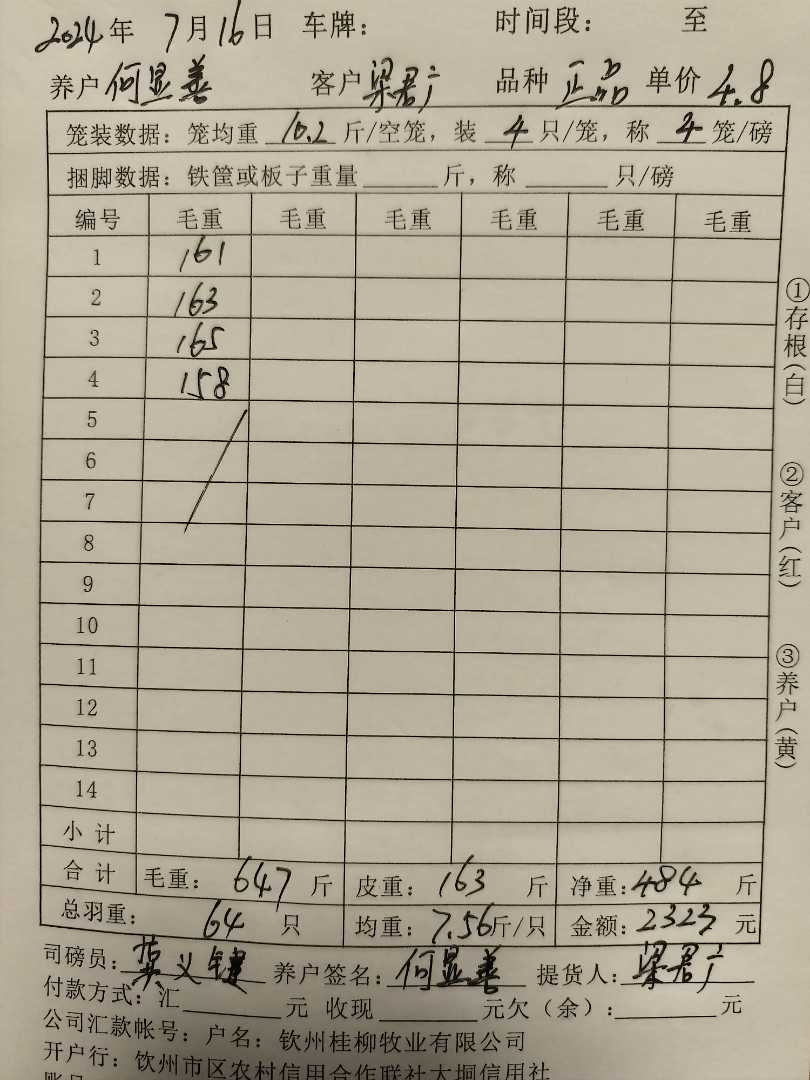 2024年 7月16日 车牌： 时间段： 至
养户 何显善 客户 梁君广 品种 正品 单价 4.8
笼装数据：笼均重 10.2 斤/空笼，装 4 只/笼，称 4 笼/磅
捆脚数据：铁筐或板子重量____斤，称____只/磅
编号 毛重 毛重 毛重 毛重 毛重 毛重
1 161
2 163
3 165
4 158
5
6
7
8
9
10
11
12
13
14
小计
合计 毛重：647 斤 皮重：163 斤 净重：484 斤
总羽重：64 只 均重：7.56斤/只 金额：2323 元
司磅员：龚义键 养户签名：何显善 提货人：梁君广
付款方式：汇____元 收现____元欠（余）：____元
公司汇款帐号：户名：钦州桂柳牧业有限公司
开户行：钦州市区农村信用合作联社大垌信用社
①存根(白)
②客户(红)
③养户(黄)